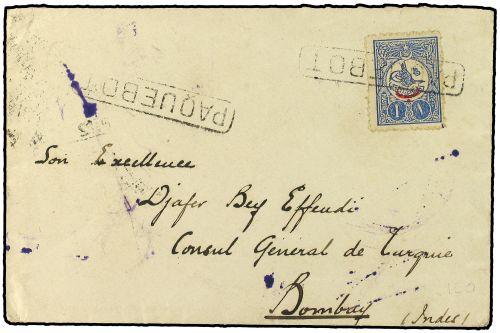 PAQUEBOT
PAQUEBOT
1 ١
Son Excellence
Djafer Bey Effendi
Consul General de Turquie
Bombay
(Indes)